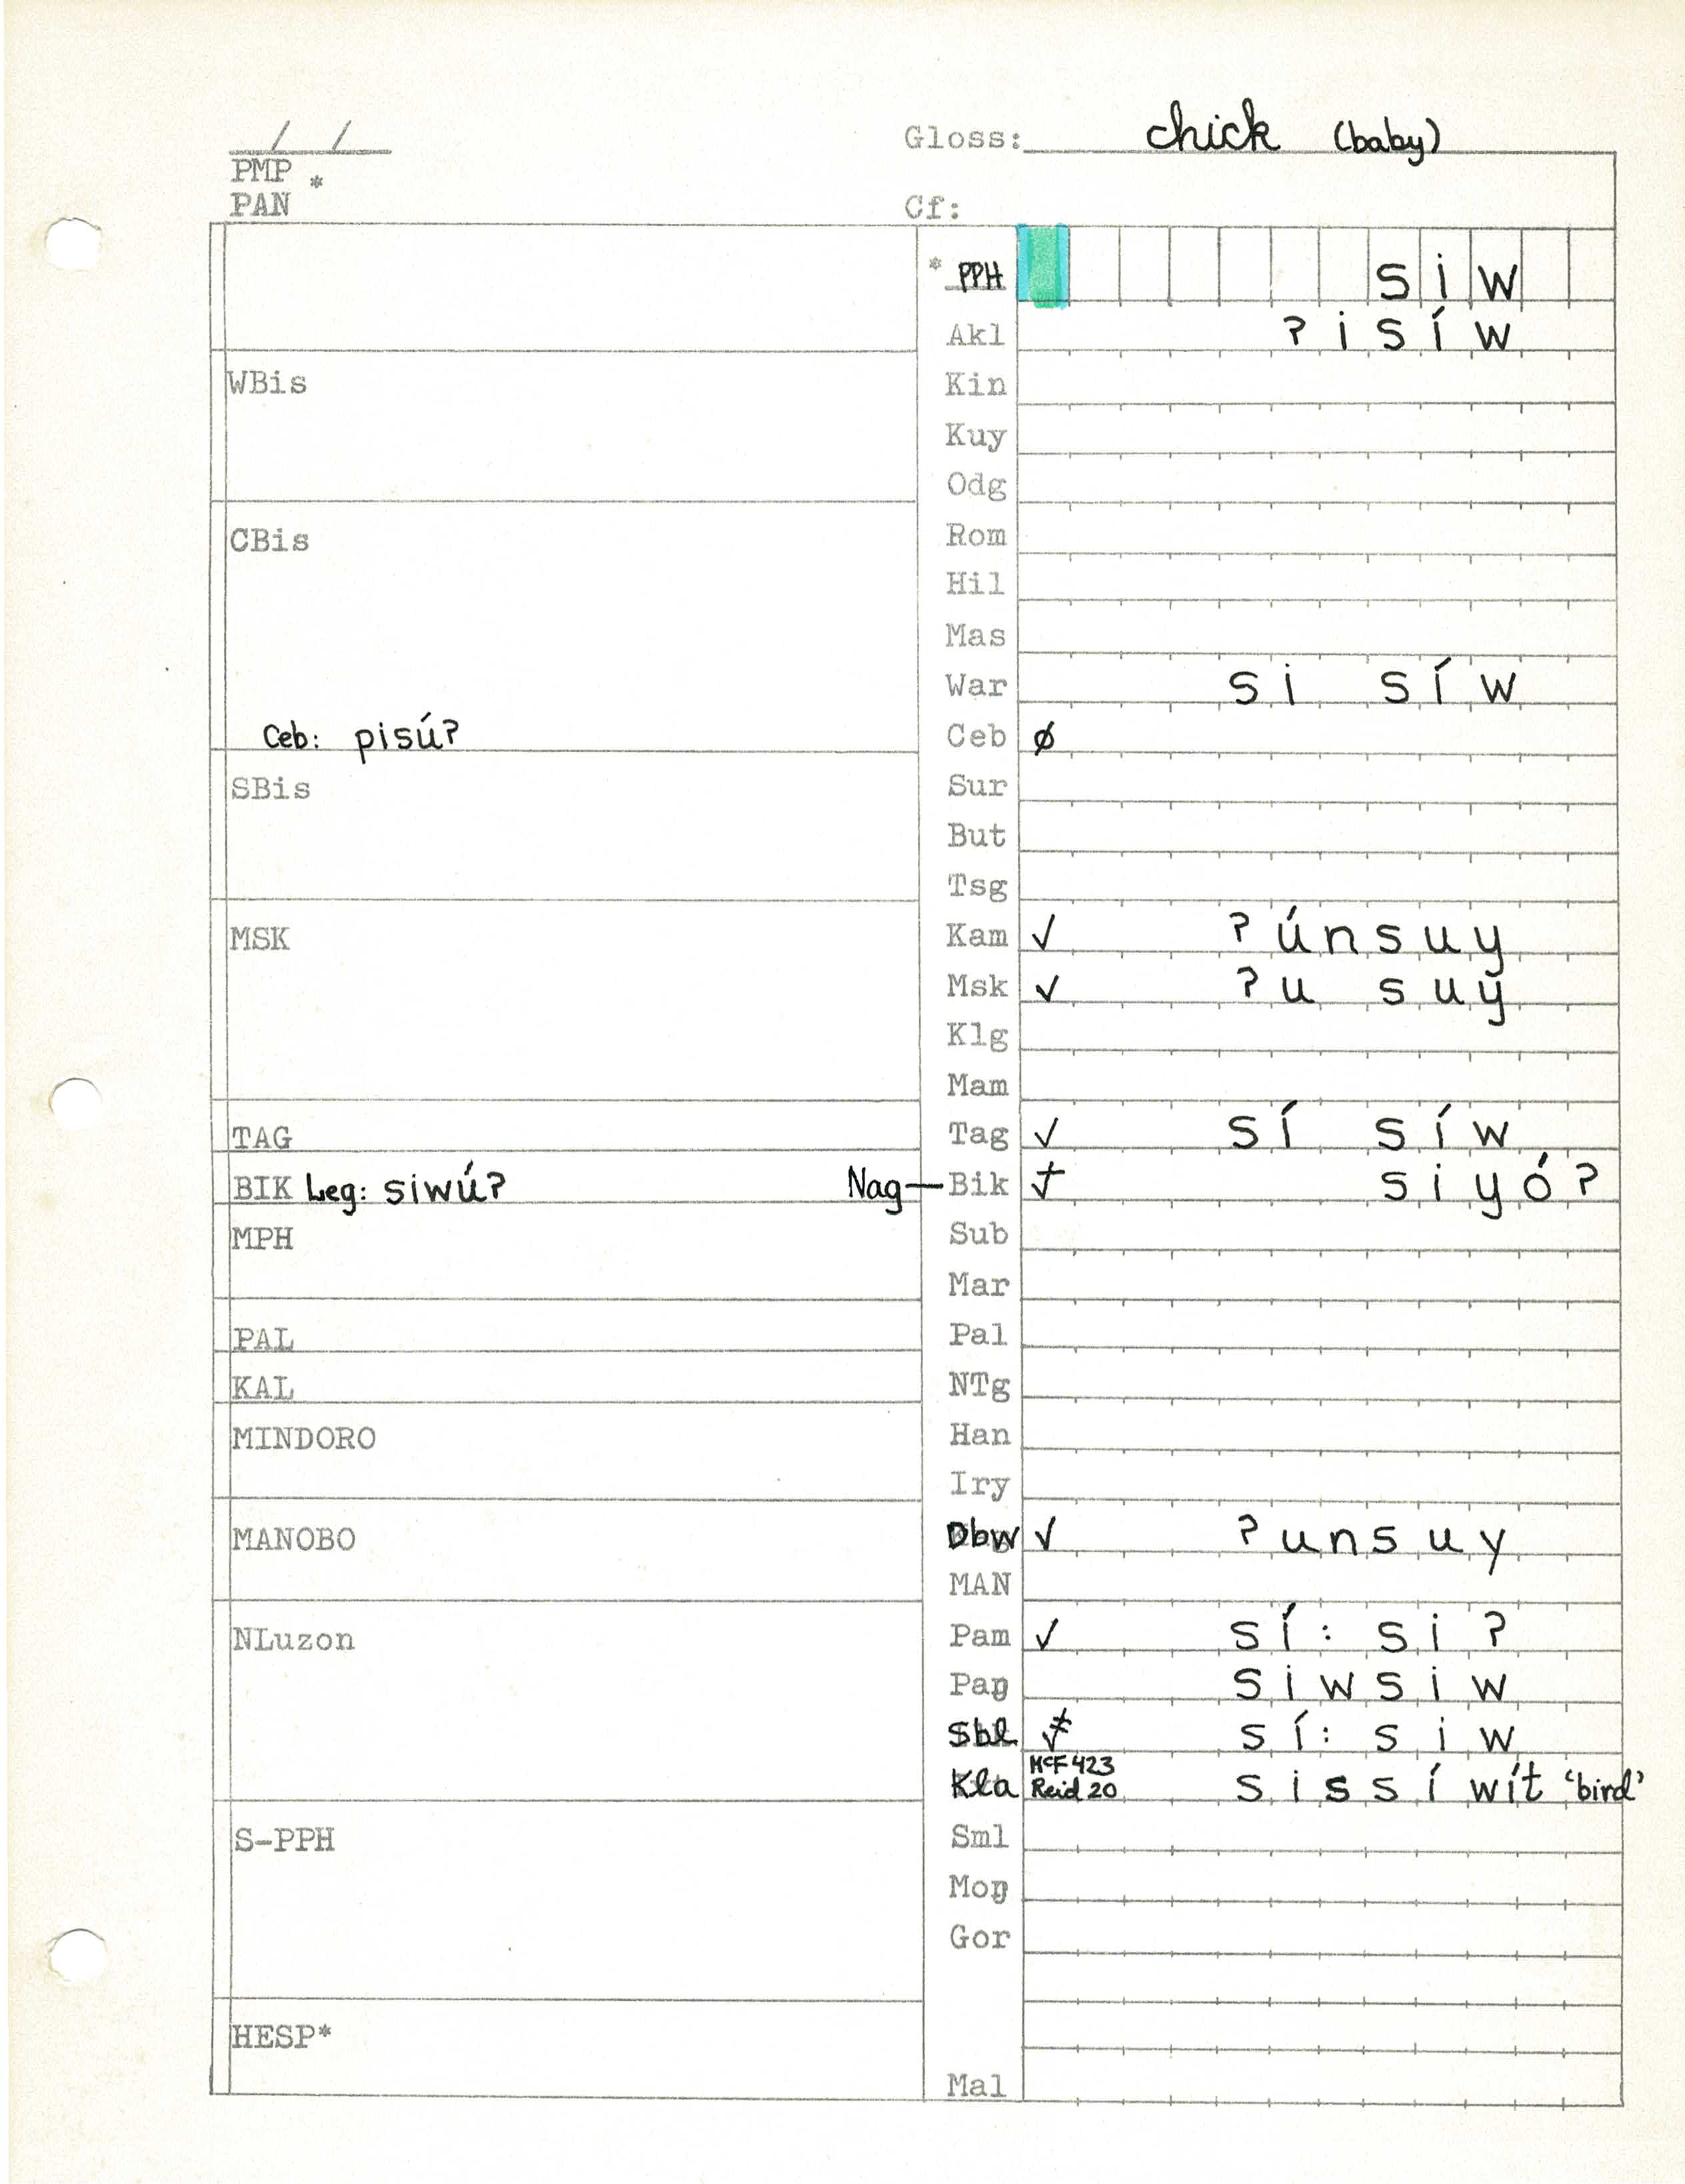 __/__/__
Gloss: chick (baby)
PMP *
PAN
Cf:
* PPH s i w
Akl ʔ i s í w
WBis
Kin
Kuy
Odg
CBis
Rom
Hil
Mas
War s i s í w
Ceb: pisúʔ
Ceb ∅
SBis
Sur
But
Tsg
MSK
Kam ✓ ʔ ú n s u y
Msk ✓ ʔ u s u y
Klg
Mam
TAG
Tag ✓ s í s í w
BIK Leg: siwúʔ Nag — Bik ✓ s i y ó ʔ
MPH
Sub
Mar
PAL
Pal
KAL
NTg
MINDORO
Han
Iry
MANOBO
Dbw ✓ ʔ u n s u y
MAN
NLuzon
Pam ✓ s í : s i ʔ
Paŋ s i w s i w
Sbl ≠✓ s í : s i w
Kla McF 423 Reid 20 s i s s í w í t ‘bird’
S-PPH
Sml
Moŋ
Gor
HESP*
Mal